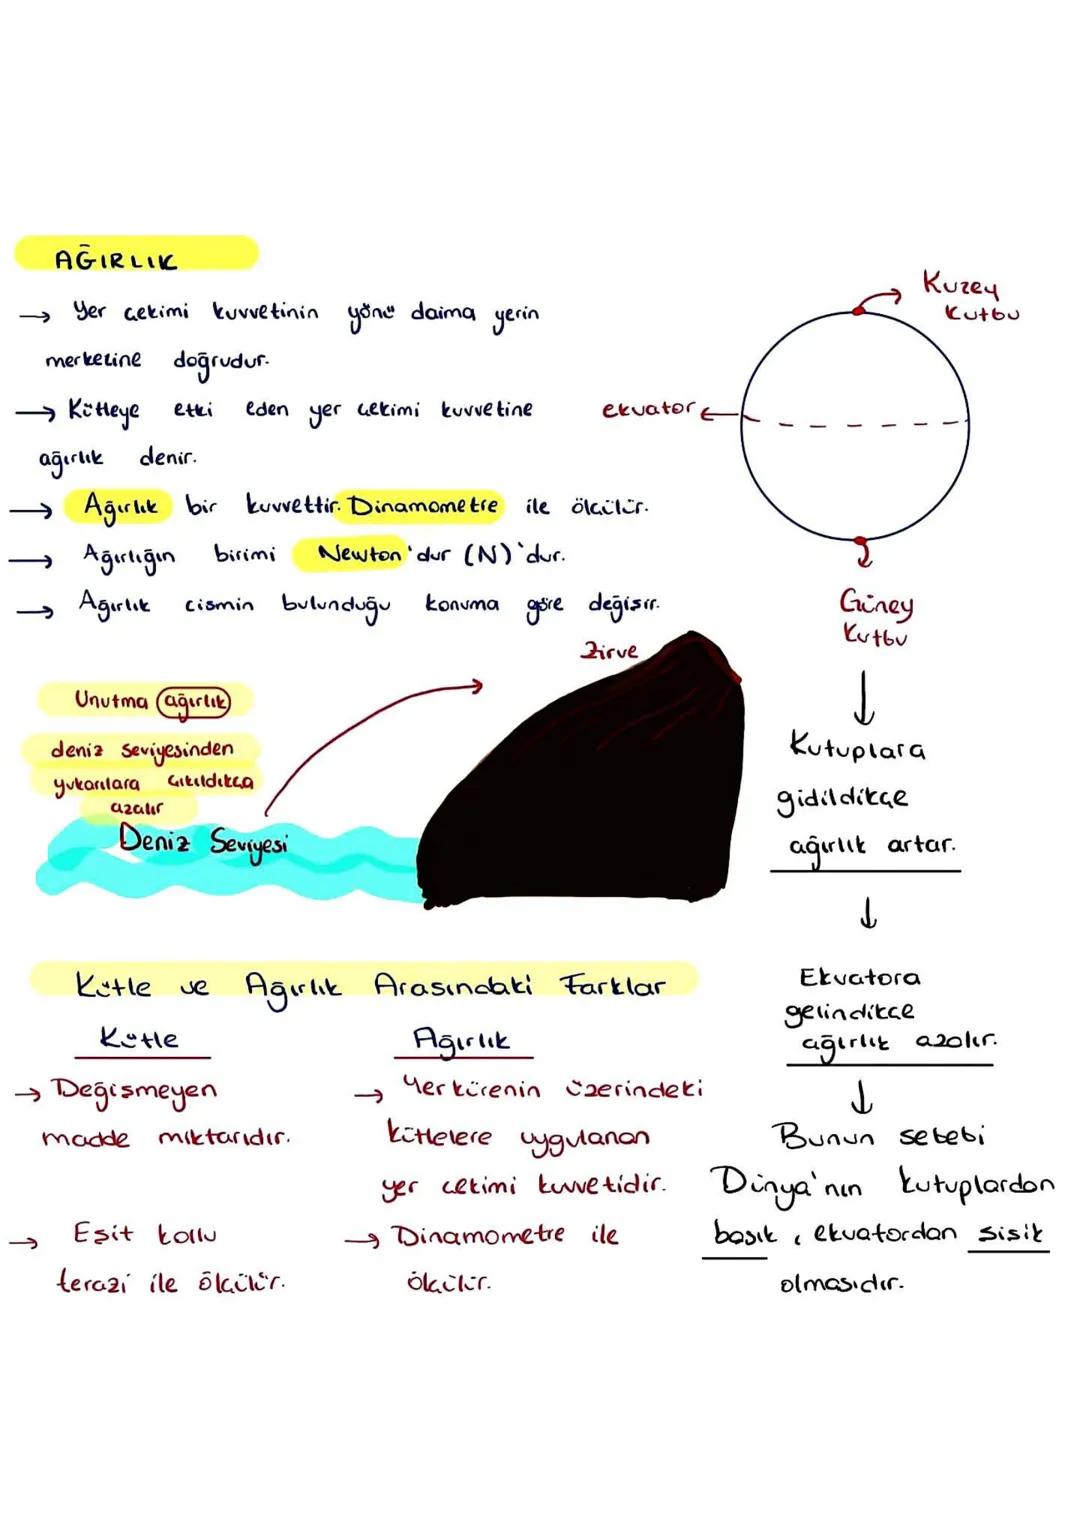 AĞIRLIK
→ Yer çekimi kuvvetinin yönü daima yerin
merkezine doğrudur.
→ Kütleye etki eden yer çekimi kuvvetine
ağırlık denir.
→ Ağırlık bir kuvvettir. Dinamometre ile ölçülür.
→ Ağırlığın birimi Newton'dur (N)'dur.
→ Ağırlık cismin bulunduğu konuma göre değişir.
Zirve
Unutma ağırlık
deniz seviyesinden
yukarılara çıkıldıkça
azalır
Deniz Seviyesi
Kuzey
Kutbu
ekvator
Güney
Kutbu
↓
Kutuplara
gidildikçe
ağırlık artar.
↓
Ekvatora
gelindikçe
ağırlık azalır.
↓
Bunun sebebi
Dünya'nın kutuplardan
basık, ekvatordan şişik
olmasıdır.
Kütle ve Ağırlık Arasındaki Farklar
Kütle
→ Değişmeyen
madde miktarıdır.
→ Eşit kollu
terazi ile ölçülür.
Ağırlık
→ Yerkürenin üzerindeki
kütlelere uygulanan
yer çekimi kuvvetidir.
→ Dinamometre ile
ölçülür.